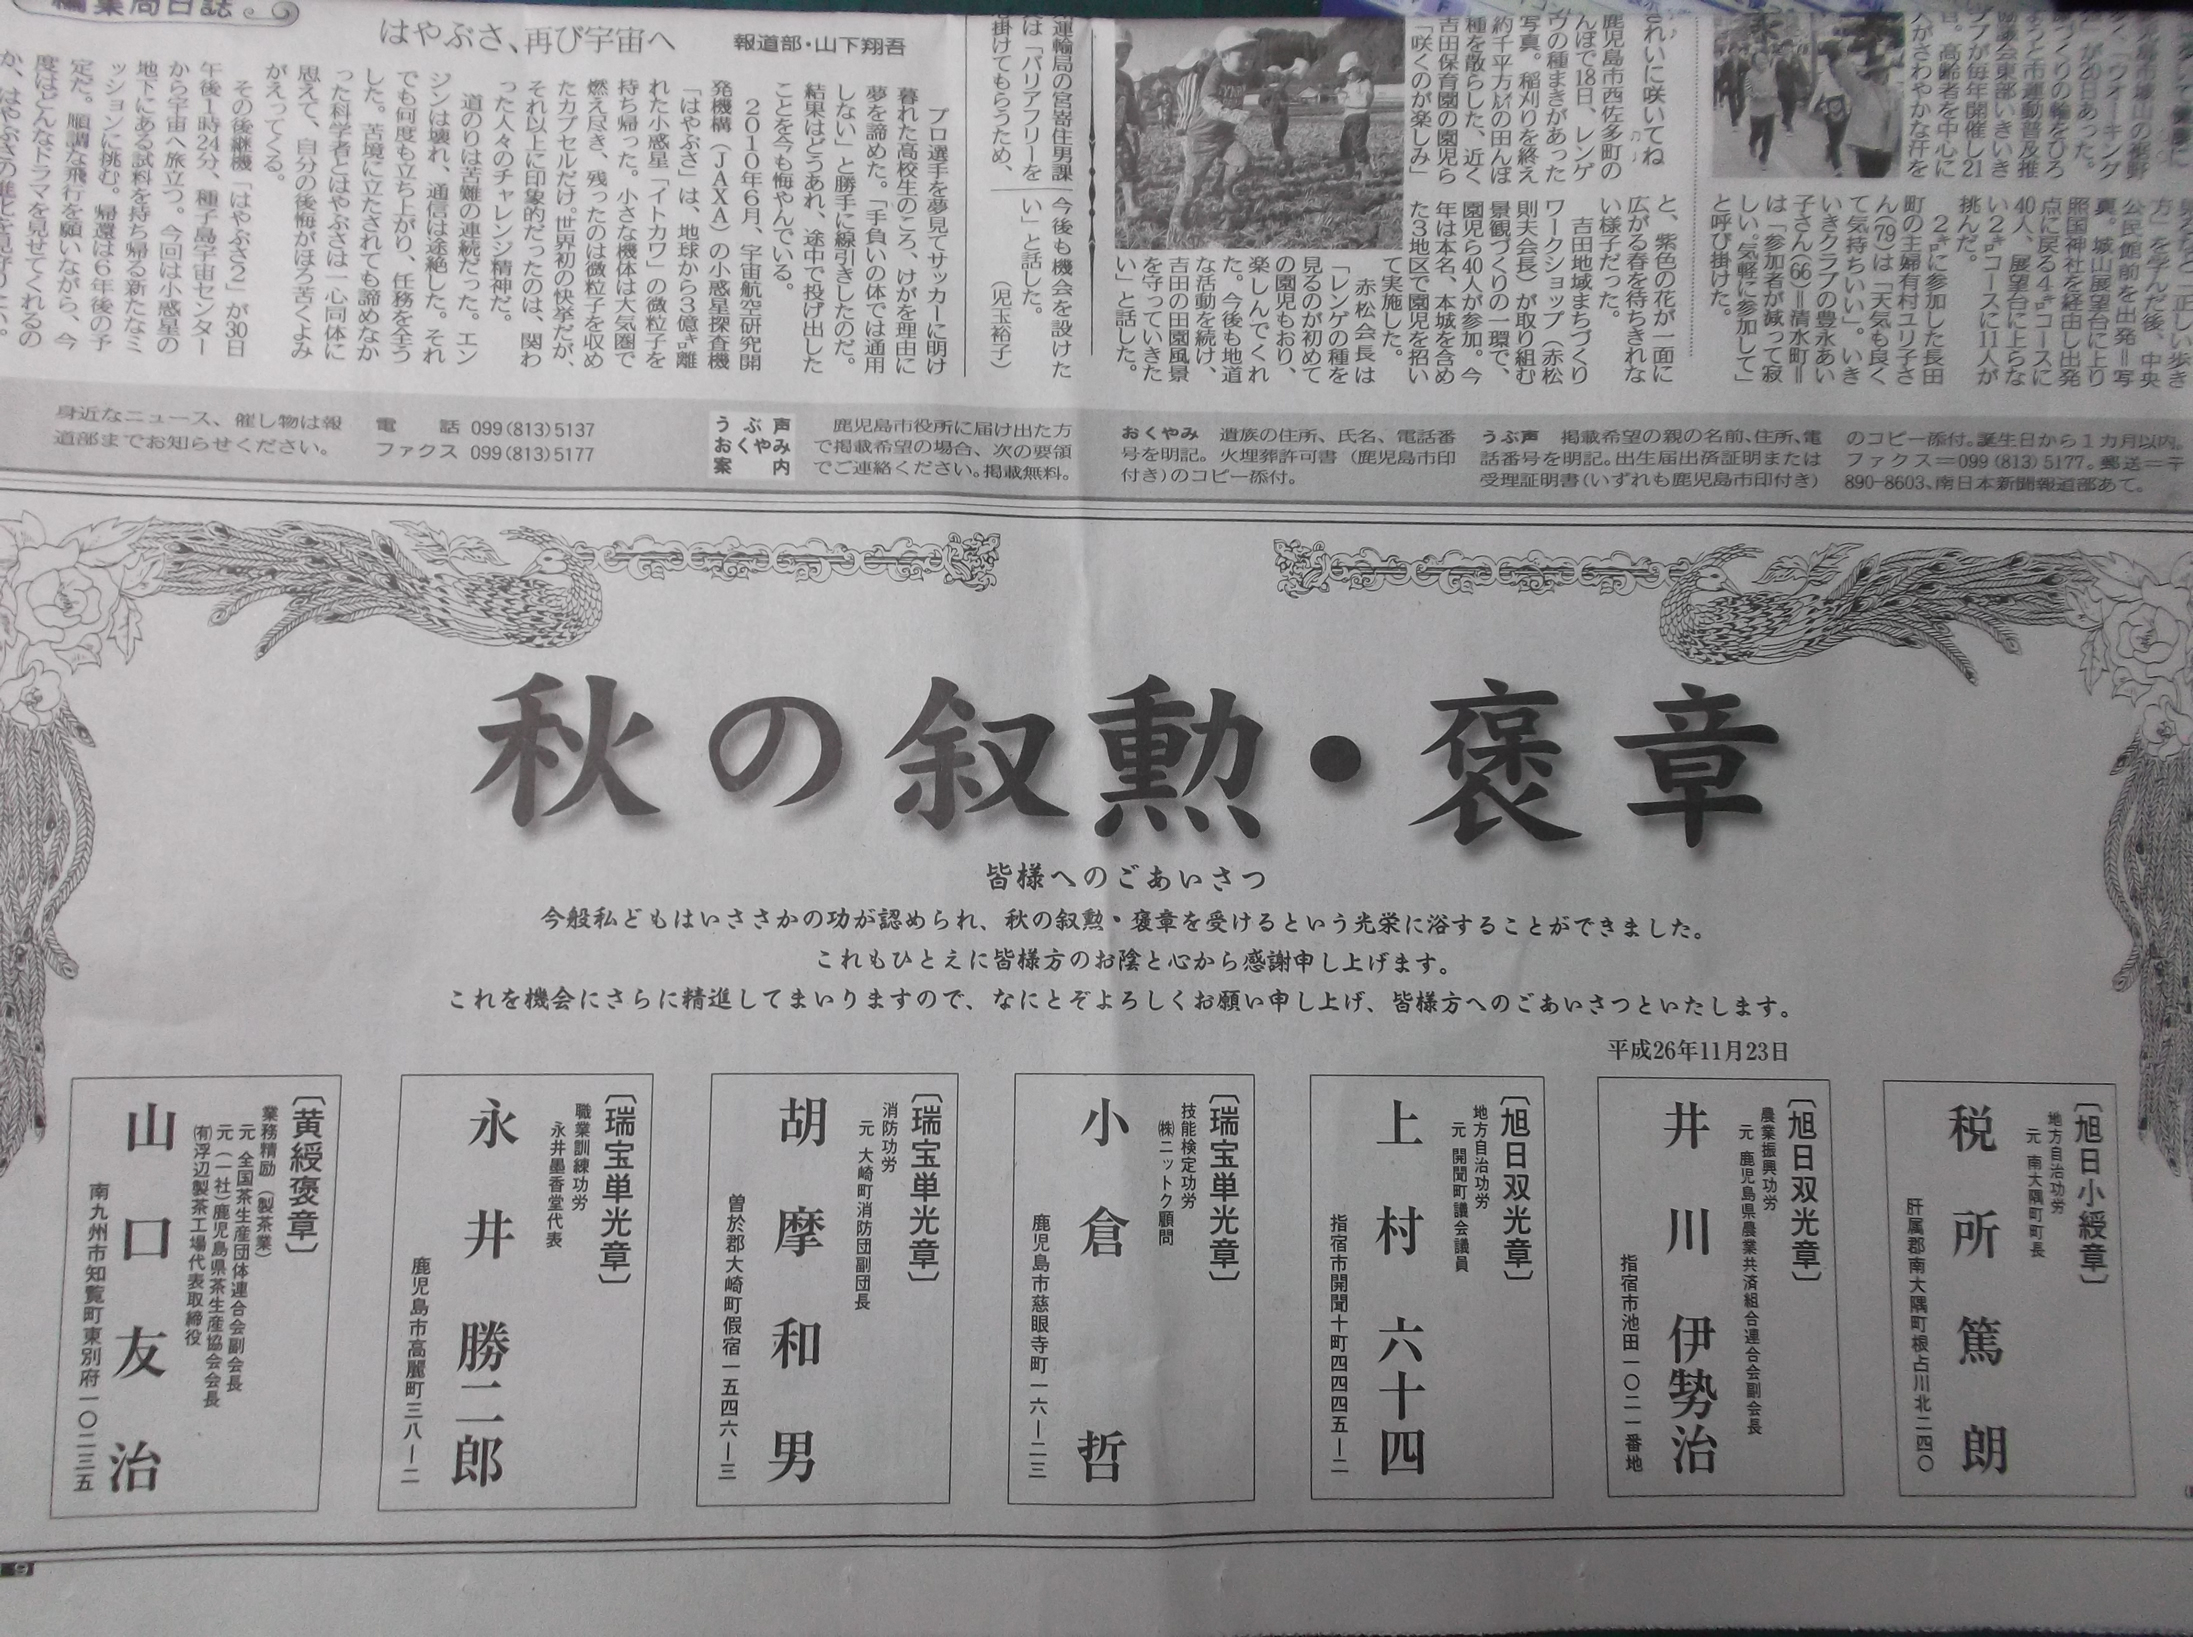 編集局日誌
はやぶさ、再び宇宙へ
報道部・山下翔吾
プロ選手を夢見てサッカーに明け
暮れた高校生のころ、けがを理由に
夢を諦めた。「手負いの体では通用
しない」と勝手に線引きしたのだ。
結果はどうあれ、途中で投げ出した
ことを今も悔やんでいる。
2010年6月、宇宙航空研究開
発機構(JAXA)の小惑星探査機
「はやぶさ」は、地球から3億㌔離
れた小惑星「イトカワ」の微粒子を
持ち帰った。小さな機体は大気圏で
燃え尽き、残ったのは微粒子を収め
たカプセルだけ。世界初の快挙だが、
それ以上に印象的だったのは、関わ
った人々のチャレンジ精神だ。
道のりは苦難の連続だった。エン
ジンは壊れ、通信は途絶した。それ
でも何度も立ち上がり、任務を全う
した。苦境に立たされても諦めなか
った科学者とはやぶさは一心同体に
思えて、自分の後悔がほろ苦くよみ
がえってくる。
その後継機「はやぶさ2」が30日
午後1時24分、種子島宇宙センター
から宇宙へ旅立つ。今回は小惑星の
地下にある試料を持ち帰る新たなミ
ッションに挑む。帰還は6年後の予
定だ。順調な飛行を願いながら、今
度はどんなドラマを見せてくれるの
か、はやぶさの進化を見守りたい。
運輸局の宮嵜住男課
は「バリアフリーを
掛けてもらうため、
今後も機会を設けた
い」と話した。
(児玉裕子)
きれいに咲いてね
鹿児島市西佐多町の
んぼで18日、レンゲ
ヴの種まきがあった
写真。稲刈りを終え
約千平方㍍の田んぼ
種を散らした、近く
吉田保育園の園児ら
「咲くのが楽しみ」
と、紫色の花が一面に
広がる春を待ちきれな
い様子だった。
吉田地域まちづくり
ワークショップ(赤松
則夫会長)が取り組む
景観づくりの一環で、
園児ら40人が参加。今
年は本名、本城を含め
た3地区で園児を招い
て実施した。
赤松会長は
「レンゲの種を
見るのが初めて
の園児もおり、
楽しんでくれ
た。今後も地道
な活動を続け、
吉田の田園風景
を守っていきた
い」と話した。
「ウオーキング
づくりの輪をひろ
」が20日あった。
ようと市運動普及推
協議会東部いきいき
ブが毎年開催し21
目。高齢者を中心に
人がさわやかな汗を
方」を学んだ後、中央
公民館前を出発=写
真。城山展望台に上り
照国神社を経由し出発
点に戻る4㌔コースに
40人、展望台に上らな
い2㌔コースに11人が
挑んだ。
2㌔に参加した長田
町の主婦有村ユリ子さ
ん(79)は「天気も良く
て気持ちいい」。いき
いきクラブの豊永あい
子さん(66)=清水町=
は「参加者が減って寂
しい。気軽に参加して」
と呼び掛けた。
身近なニュース、催し物は報
道部までお知らせください。
電話 099(813)5137
ファクス 099(813)5177
うぶ声
おくやみ
案内
鹿児島市役所に届け出た方
で掲載希望の場合、次の要領
でご連絡ください。掲載無料。
おくやみ 遺族の住所、氏名、電話番
号を明記。火埋葬許可書(鹿児島市印
付き)のコピー添付。
うぶ声 掲載希望の親の名前、住所、電
話番号を明記。出生届出済証明または
受理証明書(いずれも鹿児島市印付き)
のコピー添付。誕生日から1カ月以内。
ファクス=099(813)5177。郵送=〒
890-8603、南日本新聞報道部あて。
秋の叙勲・褒章
皆様へのごあいさつ
今般私どもはいささかの功が認められ、秋の叙勲・褒章を受けるという光栄に浴することができました。
これもひとえに皆様方のお陰と心から感謝申し上げます。
これを機会にさらに精進してまいりますので、なにとぞよろしくお願い申し上げ、皆様方へのごあいさつといたします。
平成26年11月23日
〔旭日小綬章〕
地方自治功労
元 南大隅町町長
税所篤朗
肝属郡南大隅町根占川北二四〇
〔旭日双光章〕
農業振興功労
元 鹿児島県農業共済組合連合会副会長
井川伊勢治
指宿市池田一〇二一番地
〔旭日双光章〕
地方自治功労
元 開聞町議会議員
上村六十四
指宿市開聞十町四四四五ー二
〔瑞宝単光章〕
技能検定功労
㈱ニットク顧問
小倉哲
鹿児島市慈眼寺町一六ー二三
〔瑞宝単光章〕
消防功労
元 大崎町消防団副団長
胡摩和男
曽於郡大崎町假宿一五四六ー三
〔瑞宝単光章〕
職業訓練功労
永井墨香堂代表
永井勝二郎
鹿児島市高麗町三八ー二
〔黄綬褒章〕
業務精励(製茶業)
元 全国茶生産団体連合会副会長
元(一社)鹿児島県茶生産協会会長
㈲浮辺製茶工場代表取締役
山口友治
南九州市知覧町東別府一〇二三五
9